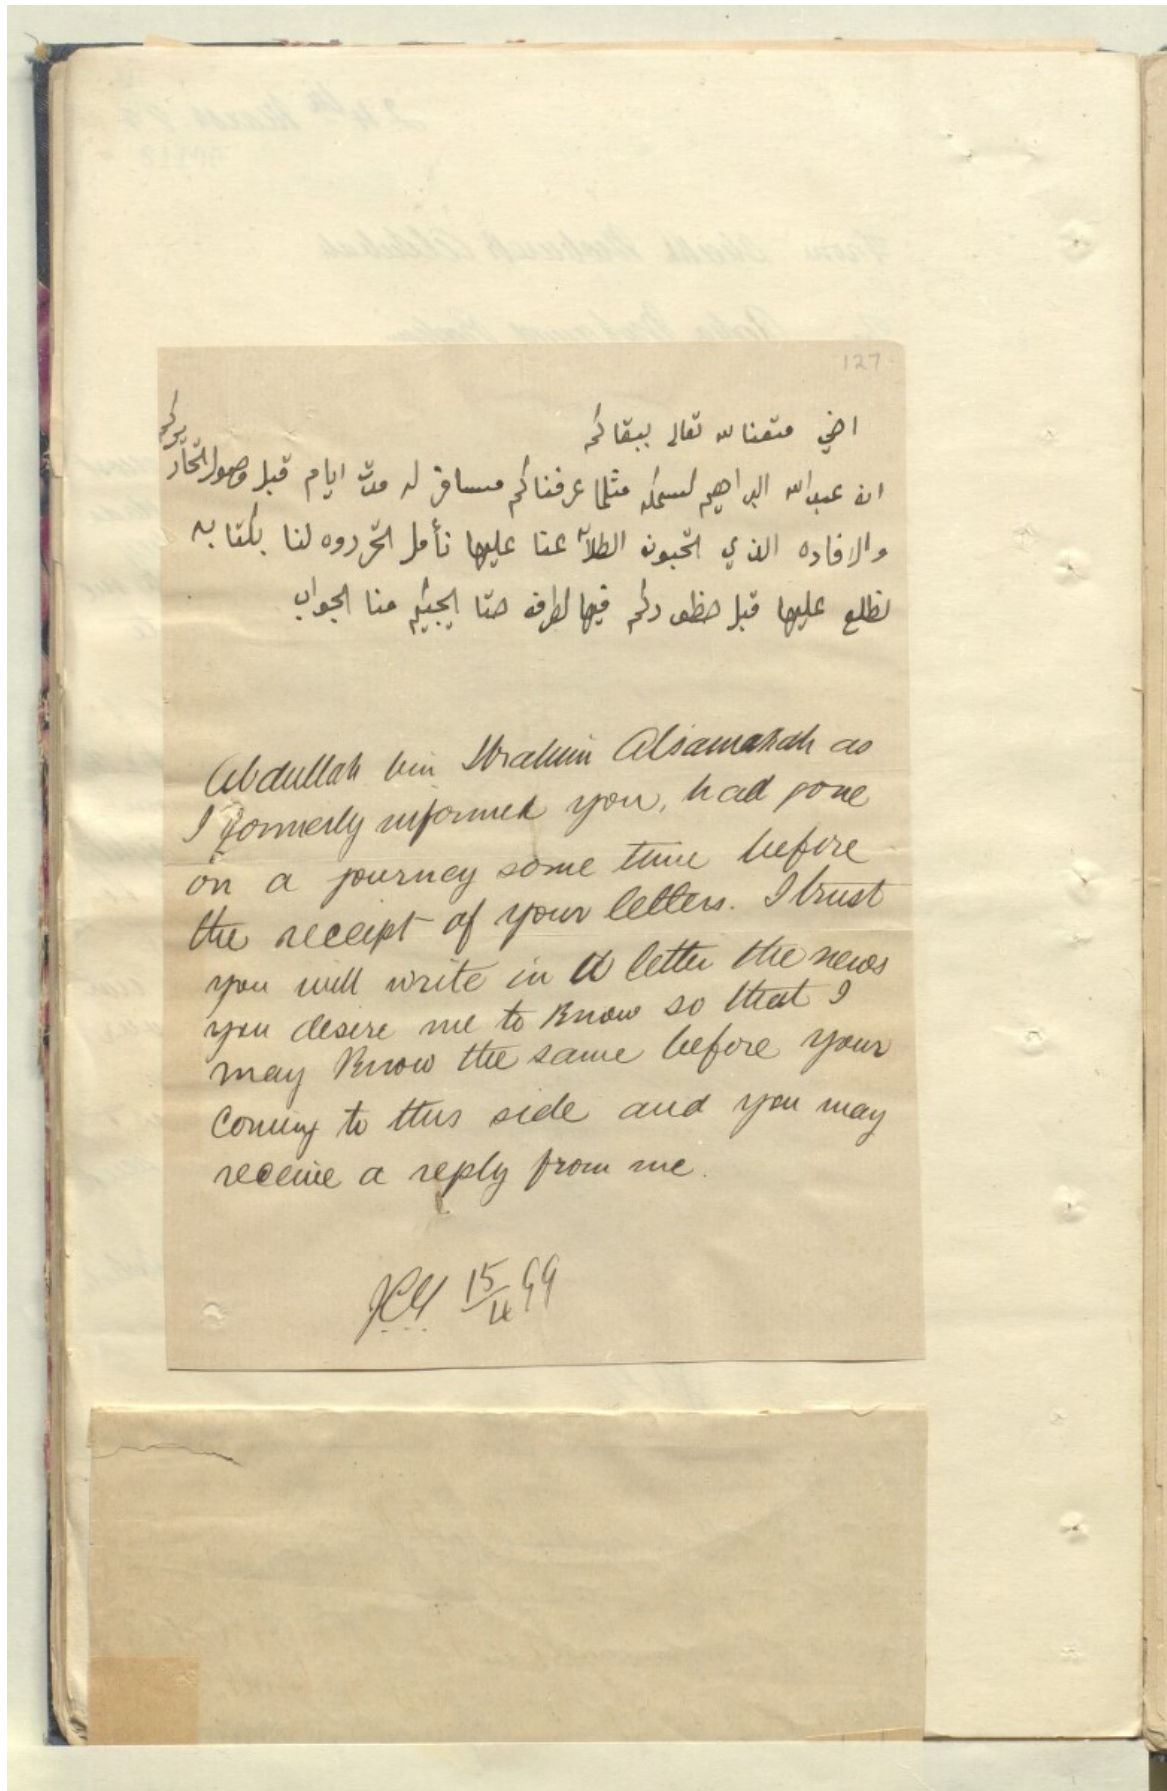 127
اخي متعنا لله تعالى ببقاكم
ان عبدالله البراهيم لسمكه مثلما عرفناكم مسافر له مدت ايام قبل وصول التحاريركم
والافاده الذي اتحبون اطلاعنا عليها نأمل اتحرروه لنا بكتابه
نطلع عليها قبل حظوركم فيها لطرف حتا ايجيكم منا الجواب
Abdullah bin Ibrahim Alsamakah as
I formerly informed you, had gone
on a journey some time before
the receipt of your letters. I trust
you will write in a letter the news
you desire me to know so that I
may know the same before your
coming to this side and you may
receive a reply from me.
15/4 99